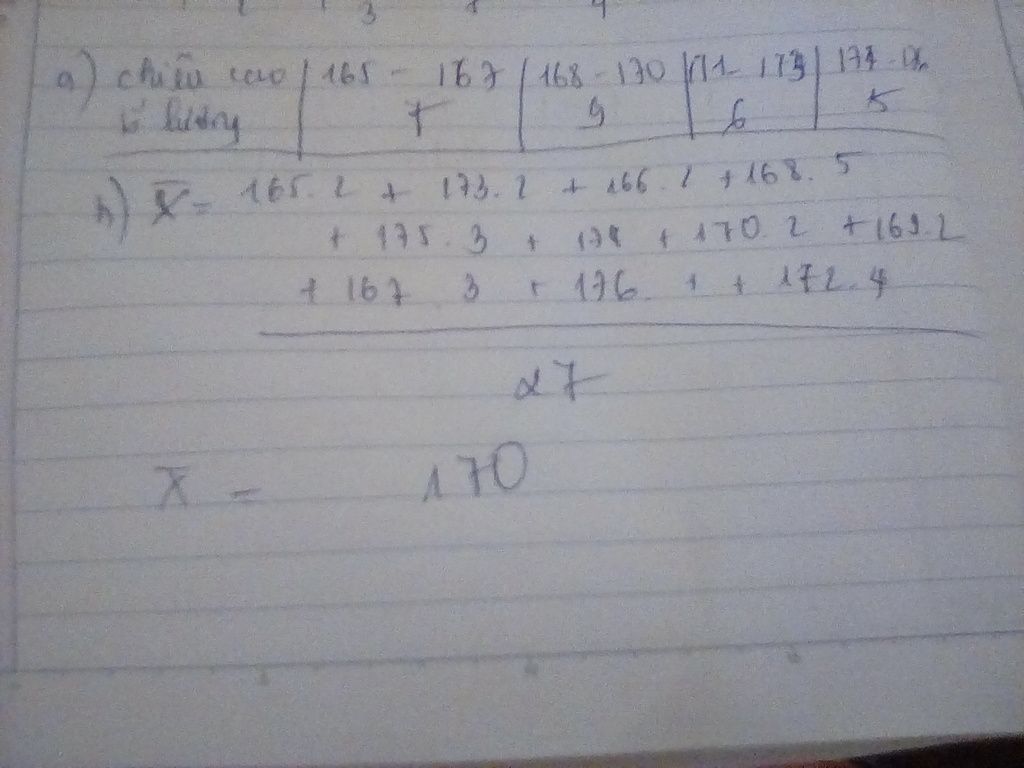 3 4
a) chiều cao | 165 - 167 | 168 - 170 | 171 - 173 | 174 - 176
số lượng | 7 | 9 | 6 | 5
b) X̄ = 165. 2 + 173. 2 + 166. 2 + 168. 5
+ 175. 3 + 174 + 170. 2 + 169. 2
+ 167 3 + 176. + + 172. 4
27
X̄ = 170